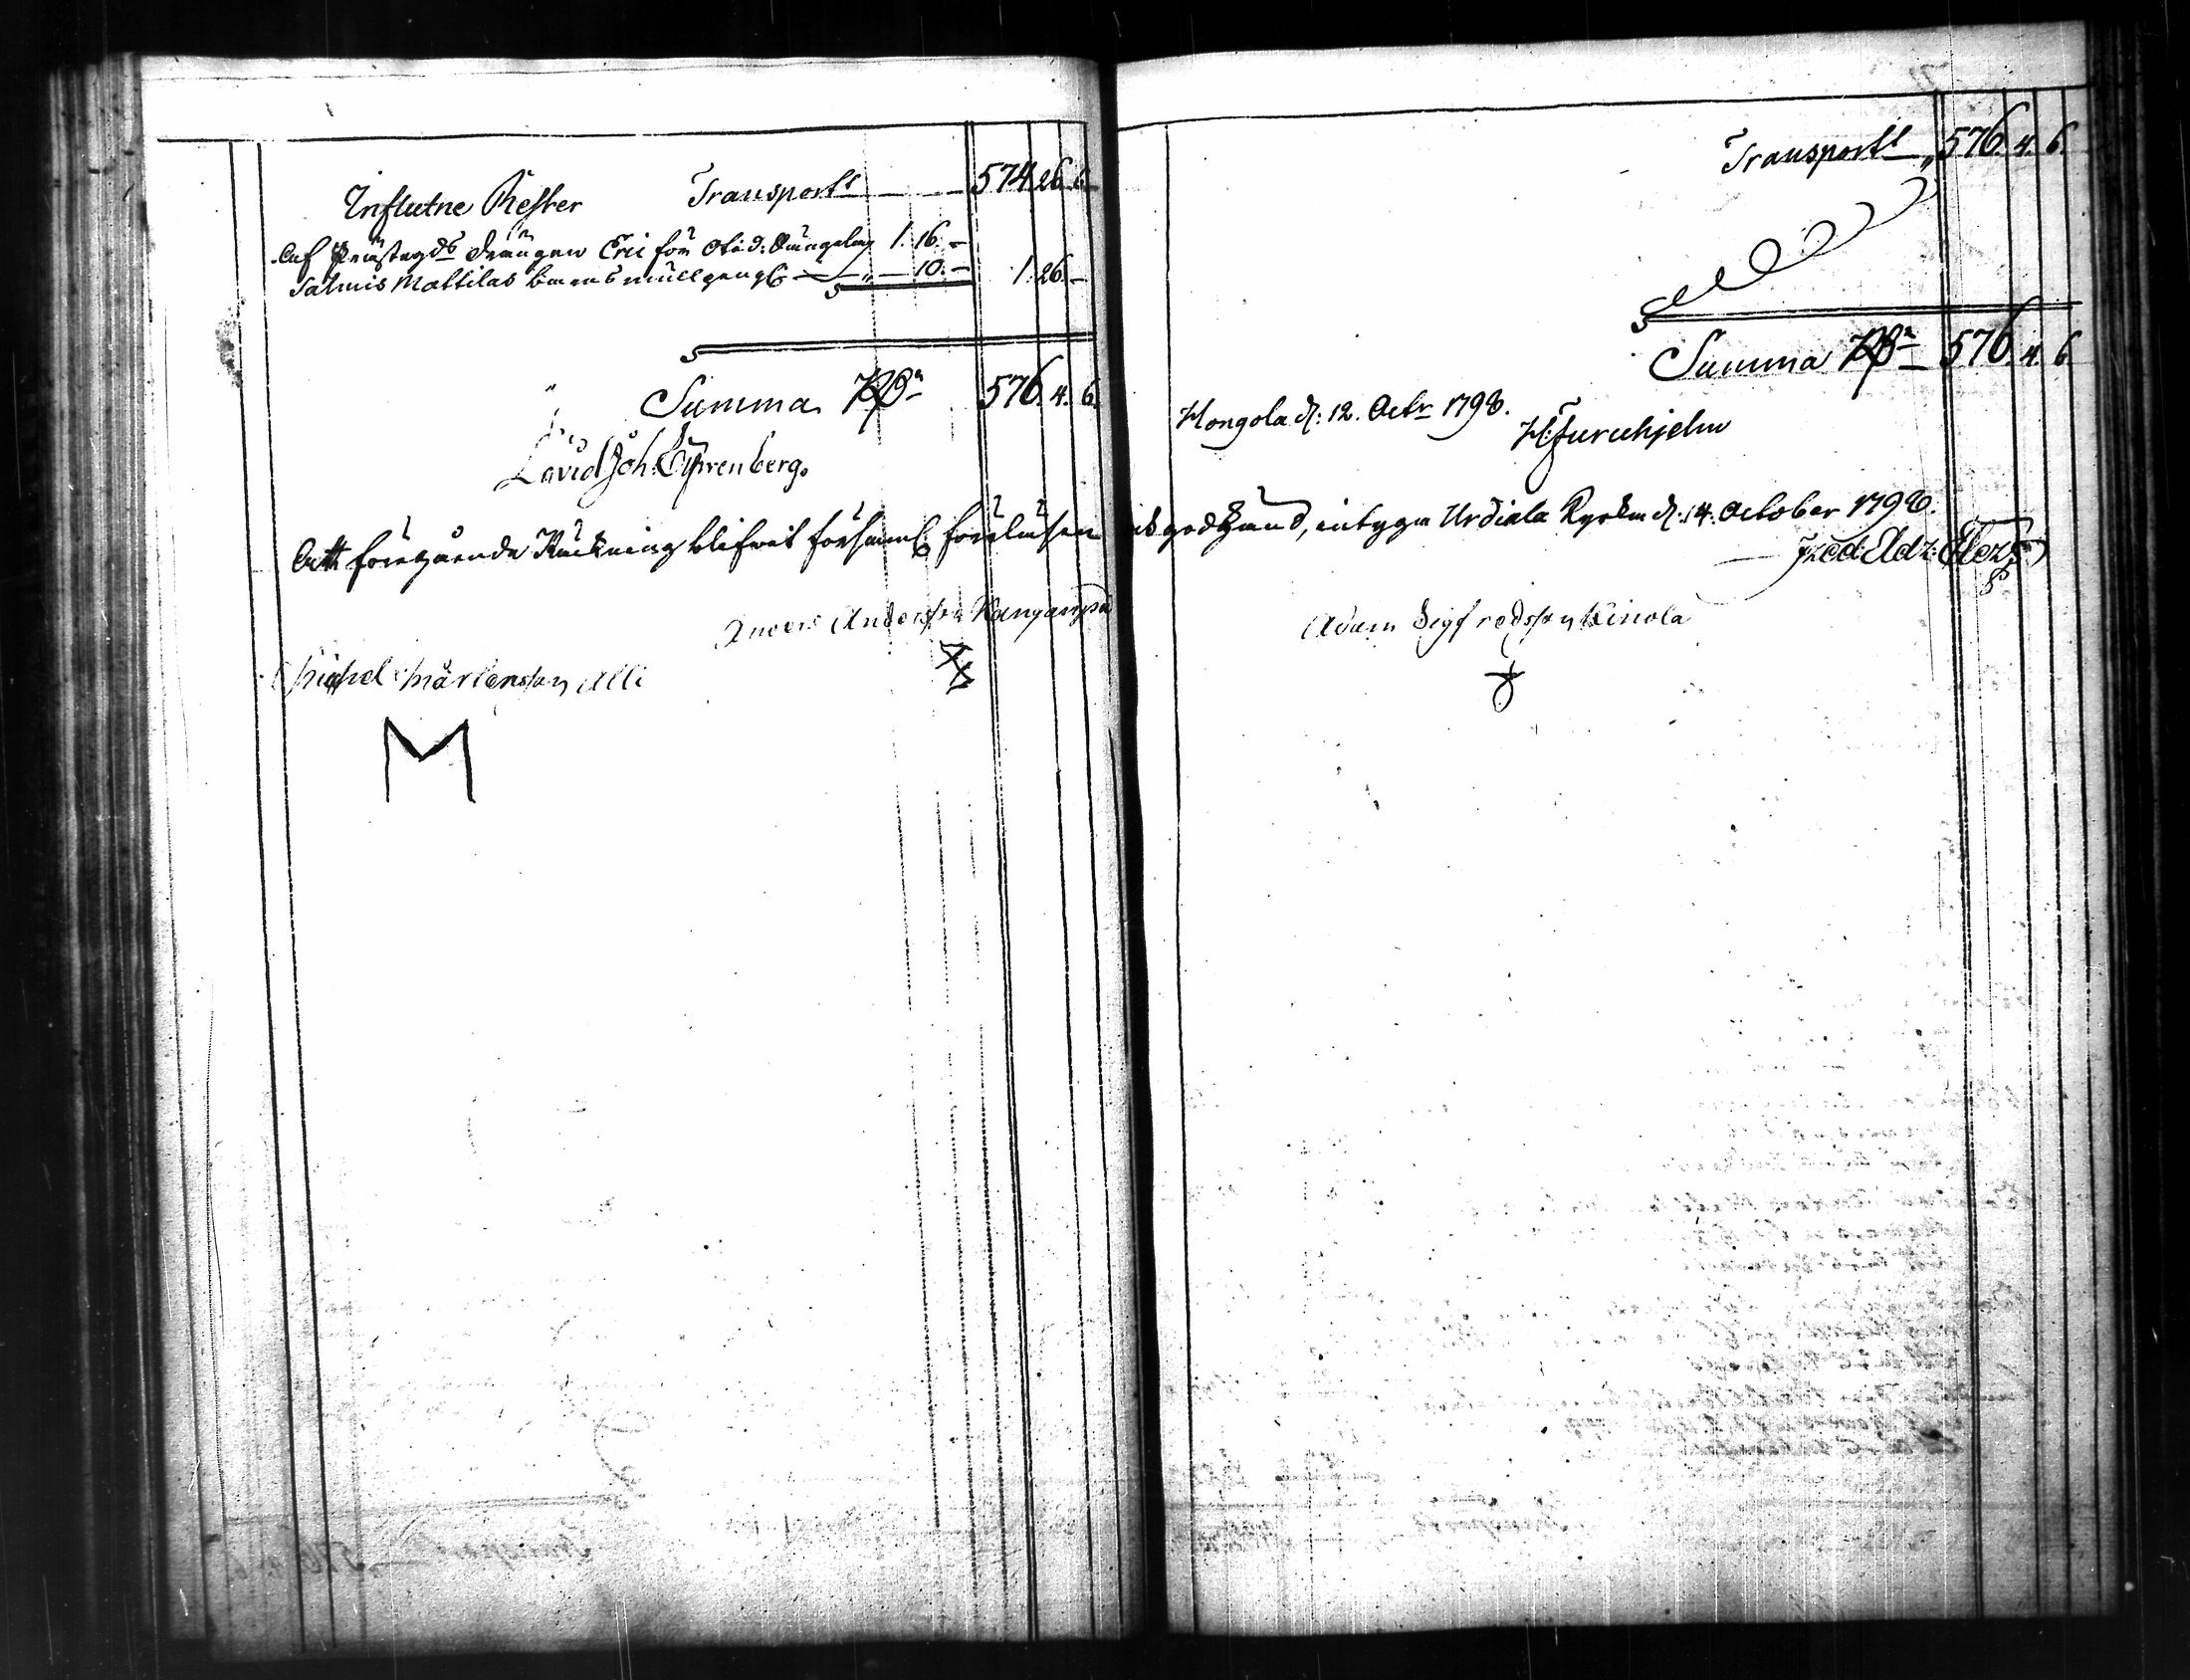 Influtne Rester Transport 574. 26. 6
Af Prästegds drängen Eric för otid: 1. 16. –
Salmis Mattilas barns mullpengr „ 10. – 1. 26. –
Summa RDr 576. 4. 6.
David Joh: Cÿrenberg.
Transport „ 576. 4. 6.
Summa RDr 576. 4. 6
Hongola d: 12. Octr 1798.
H: Furuhjelm
Att föregående Räckning blifvit församl: föreläsen och godkänd, intyga Urdiala Kyrka d: 14. October 1798.
Fred: Adr:
Anders Andersson Kanganpä
Adam Sigfredsson Kinola
Michel Mårtensson Alli
M